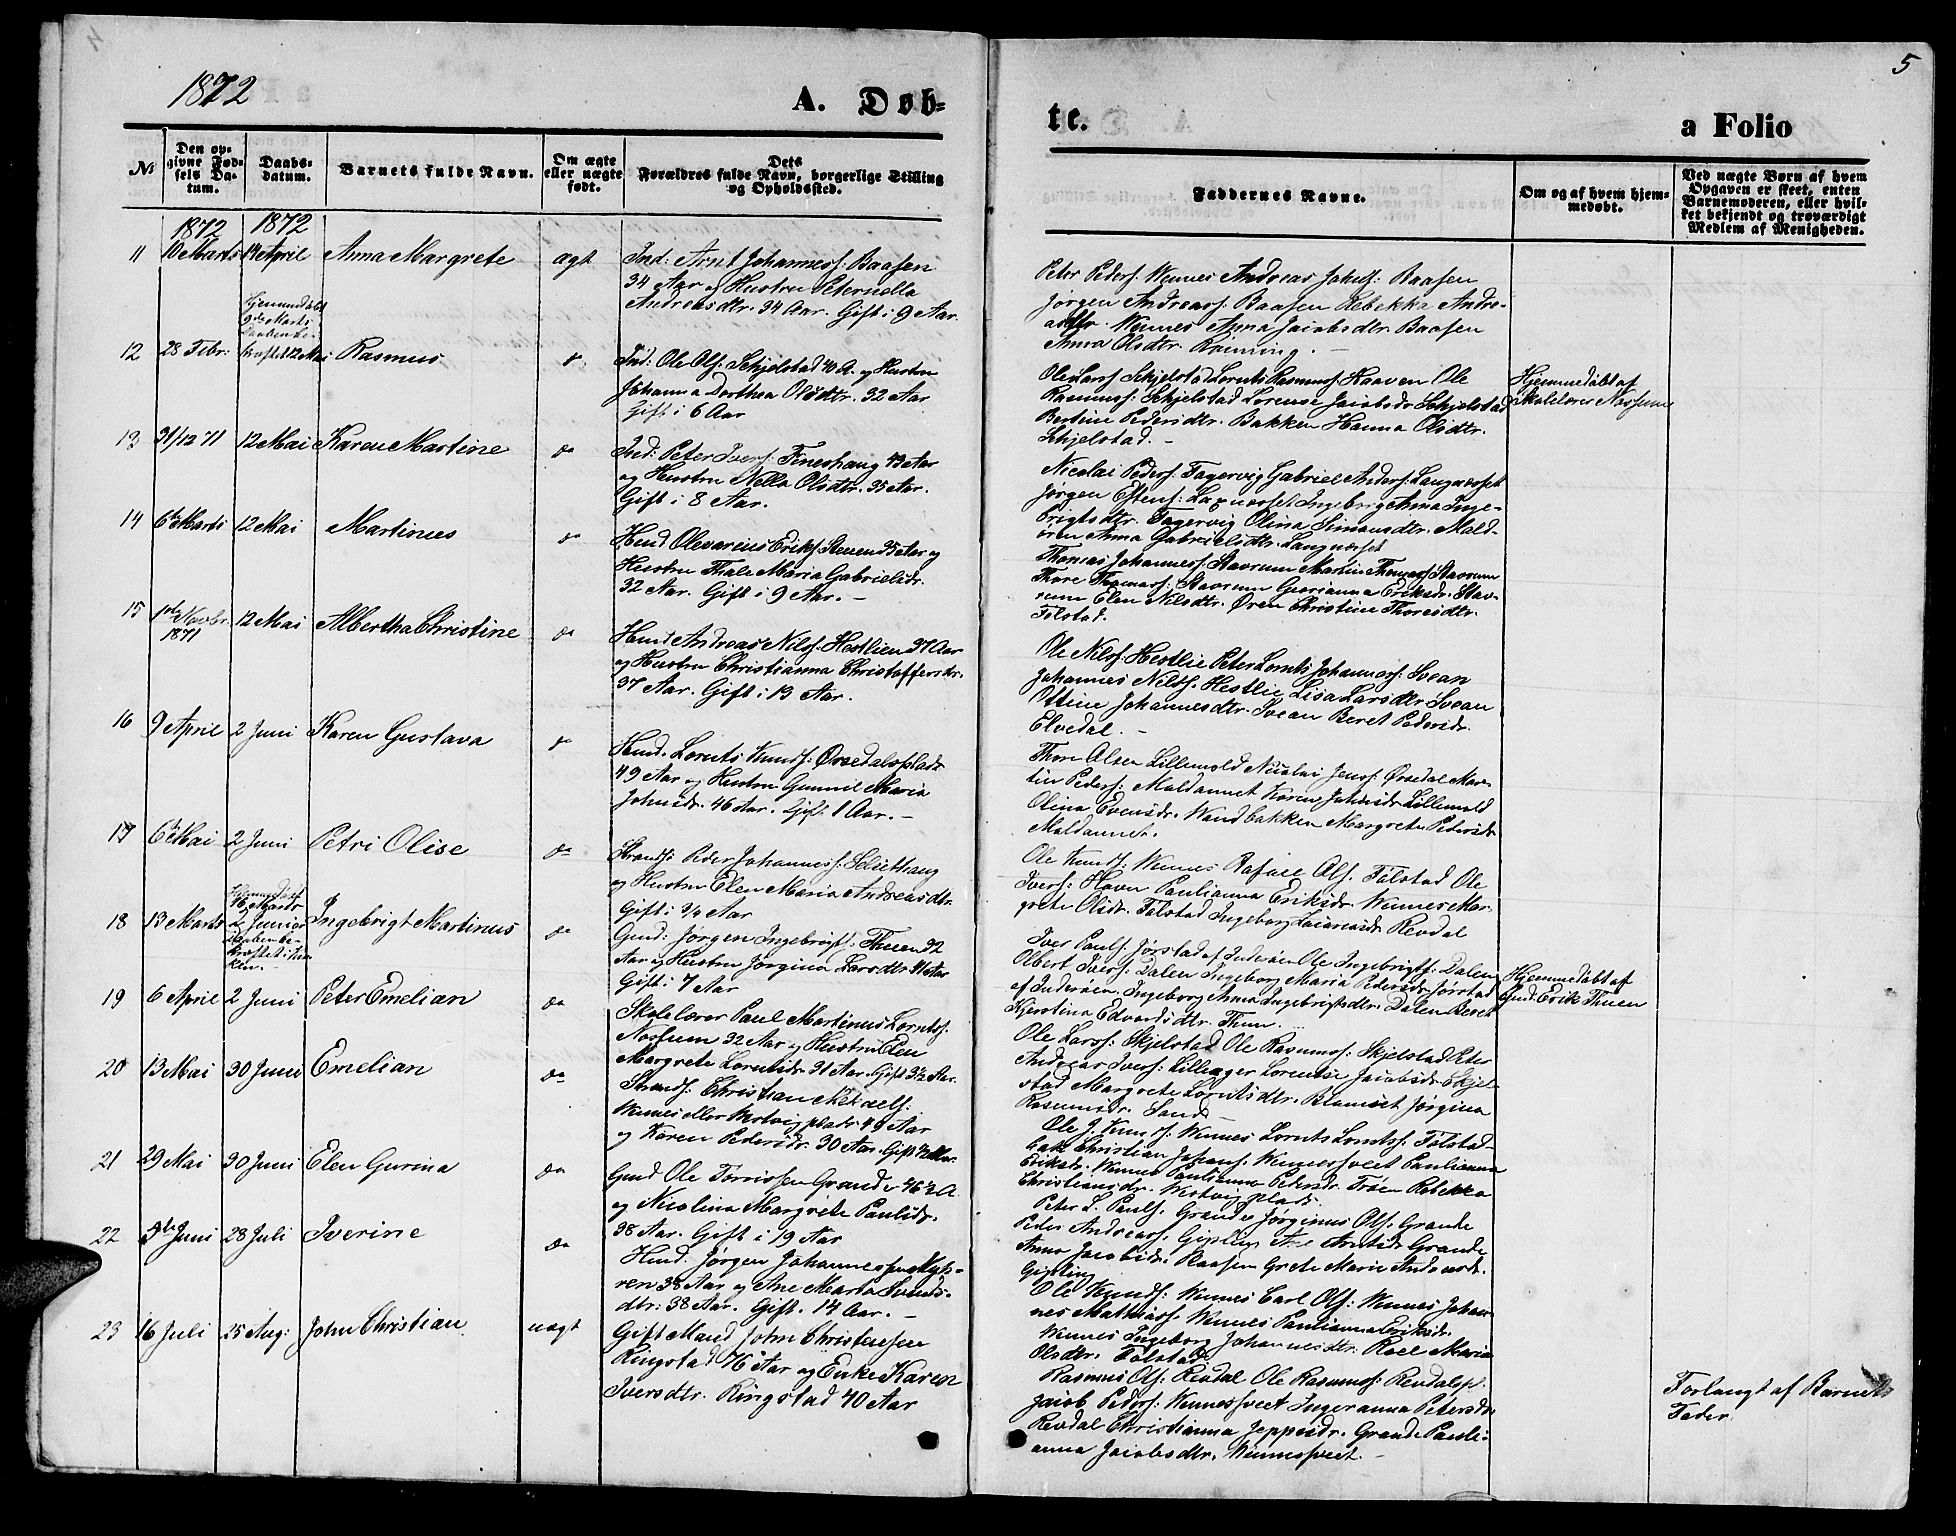 5
1872
A. Døb-
te.
a Folio
No
Den op-
givne Fød-
sels Da-
tum.
Daabs-
datum.
Barnets fulde Navn.
Om ægte
eller uægte
født.
Dets
Forældres fulde Navn, borgerlige Stilling
og Opholdssted.
Faddernes Navne.
Om og af hvem hjem-
medøbt.
Ved uægte Børn af hvem
Opgaven er skeet, enten
Barnemoderen, eller hvil-
ket bekjendt og troværdigt
Medlem af Menigheden.
1872 1872
11 10 Marts 14 April Anna Margrete ægt
Ind: Arnt Johanness: Baasen
34 Aar og Hustru Peternella
Andreasdtr. 34 Aar. Gift i 9 Aar.
Peter Peders: Wennes Andreas Jakobs: Baasen
Jørgen Andreass: Baasen Rebekka Andre-
asdtr. Wennes Anna Jacobsdtr. Baasen
Anna Olsdtr. Rønning. -
Hjemmedøbt
9de Marts
Daaben be-
kræftet 12 Mai
12 28 Febr: Rasmus do
Ind: Ole Ols. Schjelstad 40 A. og Hustru
Johanna Dorthea Olsdtr. 32 Aar
Gift i 6 Aar
Ole Larss Schjelstad Lornts Rasmuss: Haaven Ole
Rasmuss: Schjelstad Lorense Jacobsdr Schjelstad
Bertine Pedersdtr. Bakken Hanna Olsdtr.
Schjelstad. -
Hjemmedøbt af
Skolelærer Nossum
13 31/12 71 12 Mai Karen Martine do
Ind: Peter Ivers: Fineshaug 43 Aar
og Hustru Nella Olsdtr. 35 Aar.
Gift i 8 Aar.
Nicolai Peders: Fagervig Gabriel Anders: Langnæsset
Jørgen Estens: Langnæsset Ingebrig Anna Inge-
brigtsdtr. Fagervig Olina Simonsdtr. Mald-
ören Anna Gabrielsdtr. Langnæsset
14 6te Marts 12 Mai Martinus do
Hmd Olevarius Eriks: Stenen 35 Aar og
Hustru Thale Maria Gabrielsdr.
32 Aar. Gift i 9 Aar. -
Thomas Johanness: Stavrum Martin Thomass Stavrum
Thore Thomass: Stavrum Gurianna Eriksdr. Stav-
rum Elen Nilsdtr. Øren Christine Thoresdtr.
Tølstad.
15 1ste Novbr. 1871 12 Mai Albertha Christine do
Hmd Andreas Nils: Hestlien 37 Aar
og Hustru Christianna Christoffersdr.
37 Aar. Gift i 13 Aar.
Ole Nilss: Hestlie Peter Lornts Johanness: Svean
Johannes Nilss. Hestlie Lisa Larsdtr. Svean
Ottine Johannesdtr. Svean Beret Pedersdr.
Elvedal. -
16 9 April 2 Juni Karen Gustava do
Hmd. Lornts Knuds: Øvsedalsplads
49 Aar og Hustru Gunnil Maria
Johnsdr. 46 Aar. Gift 1 Aar. -
Thore Olsen Lillemold Nicolai Jenss: Øvsedal Mar-
tin Peders: Maldannet Karen Johnsdr. Lillemold
Olina Evensdr. Wandbakken Margrete Pedersdr
Maldannet.
17 6te Mai 2 Juni Petri Olise do
Strands: Peder Johanness: Selsethaug
og Hustru Elen Maria Andreasdtr.
Gift i 3/4 Aar
Ole Knuds: Wennes Rafael Ols. Tølstad Ole
Ivers: Havn Paulianna Eriksdr. Wennes Mar-
grete Olsdr. Tølstad Ingeborg Lasarusdr. Revdal
Hjemmedøbt
16 Marts
2 Juni er
Daaben be-
kræftet i Kir-
ken. -
18 13 Marts Ingebrigt Martinus do
Gmd: Jørgen Ingebrigts: Thuen 32
Aar og Hustru Jørgina Larsdtr. 41 Aar
Gift i 7 Aar
Iver Pauls. Jørstad af Inderøen Ole Ingebrigts: Dalen
Olbert Ivers: Dalen Ingeborg Maria Pedersdr. Jørstad
af Inderøen. Ingeborg Anna Ingebrigtsdtr. Dalen Beret
Kjerstina Edvardsdtr. Thuen.
Hjemmedøbt af
Gmd. Erik Thuen
19 6 April 2 Juni Peter Emelian do
Skolelærer Paul Martinus Lornts:
Nossum 32 Aar og Hustru Elen
Margrete Lorntsdr. 31 Aar. Gift 3½ Aar.
Ole Larss: Skjelstad Ole Rasmuss: Skjelstad Peter
Andreas Ivers: Lilleager Lorentse Jacobsdr. Skjel-
stad Margrete Lorntsdtr. Elvmoet Jørgina
Rasmusdr. Sand -
20 13 Mai 30 Juni Emelian do
Strands: Christian Mikaels:
Wennes eller Westvig plads: 49 Aar
og Karen Pedersdr. 30 Aar. Gift ½ Aar.
Ole J. Knuds: Wennes Lornts Lorntss: Tølstad-
bak Christian Johans. Wennessveet Paulianna
Eriksdr. Wennes Paulianna Pedersdr. Trøen Rebekka
Christiansdtr. Westvig plads.
21 29 Mai 30 Juni Elen Gurina do
Gmd Ole Torrissen Grande 46½ A.
og Nicolina Margrete Paulsdr.
38 Aar. Gift i 19 Aar
Peter L. Pauls. Grande Jørginus Ols. Grande
Peder Andreass. Gipling Ane Arntsdr. Grande
Anna Jacobsdr. Baasen Grete Maria Andreasdr.
Gipling
22 5te Juni 28 Juli Iverine do
Hmd. Jørgen Johannessen
ren 38 Aar og Ane Marta Svends-
dtr: 38 Aar. Gift. 14 Aar. -
Ole Knuds: Wennes Carl Ols: Wennes Johan-
nes Mathiass: Wennes Paulianna Eriksdr.
Wennes Ingeborg Johannesdtr. Roel Maria
Olsdtr. Tølstad.
23 16 Juli 25 Aug: John Christian uægt
Gift Mand John Christensen
Ringstad 76 Aar og Enke Karen
Iversdtr. Ringstad 40 Aar
Rasmus Ols. Revdal Ole Rasmuss: Revdalspl.
Jacob Peders: Wennessveet Ingeranna Petersdr.
Revdal Christianna Jeppesdr. Grande Pauli-
anna Jacobsdtr. Wennessveet. -
Forlangt af Barnets
Fader.